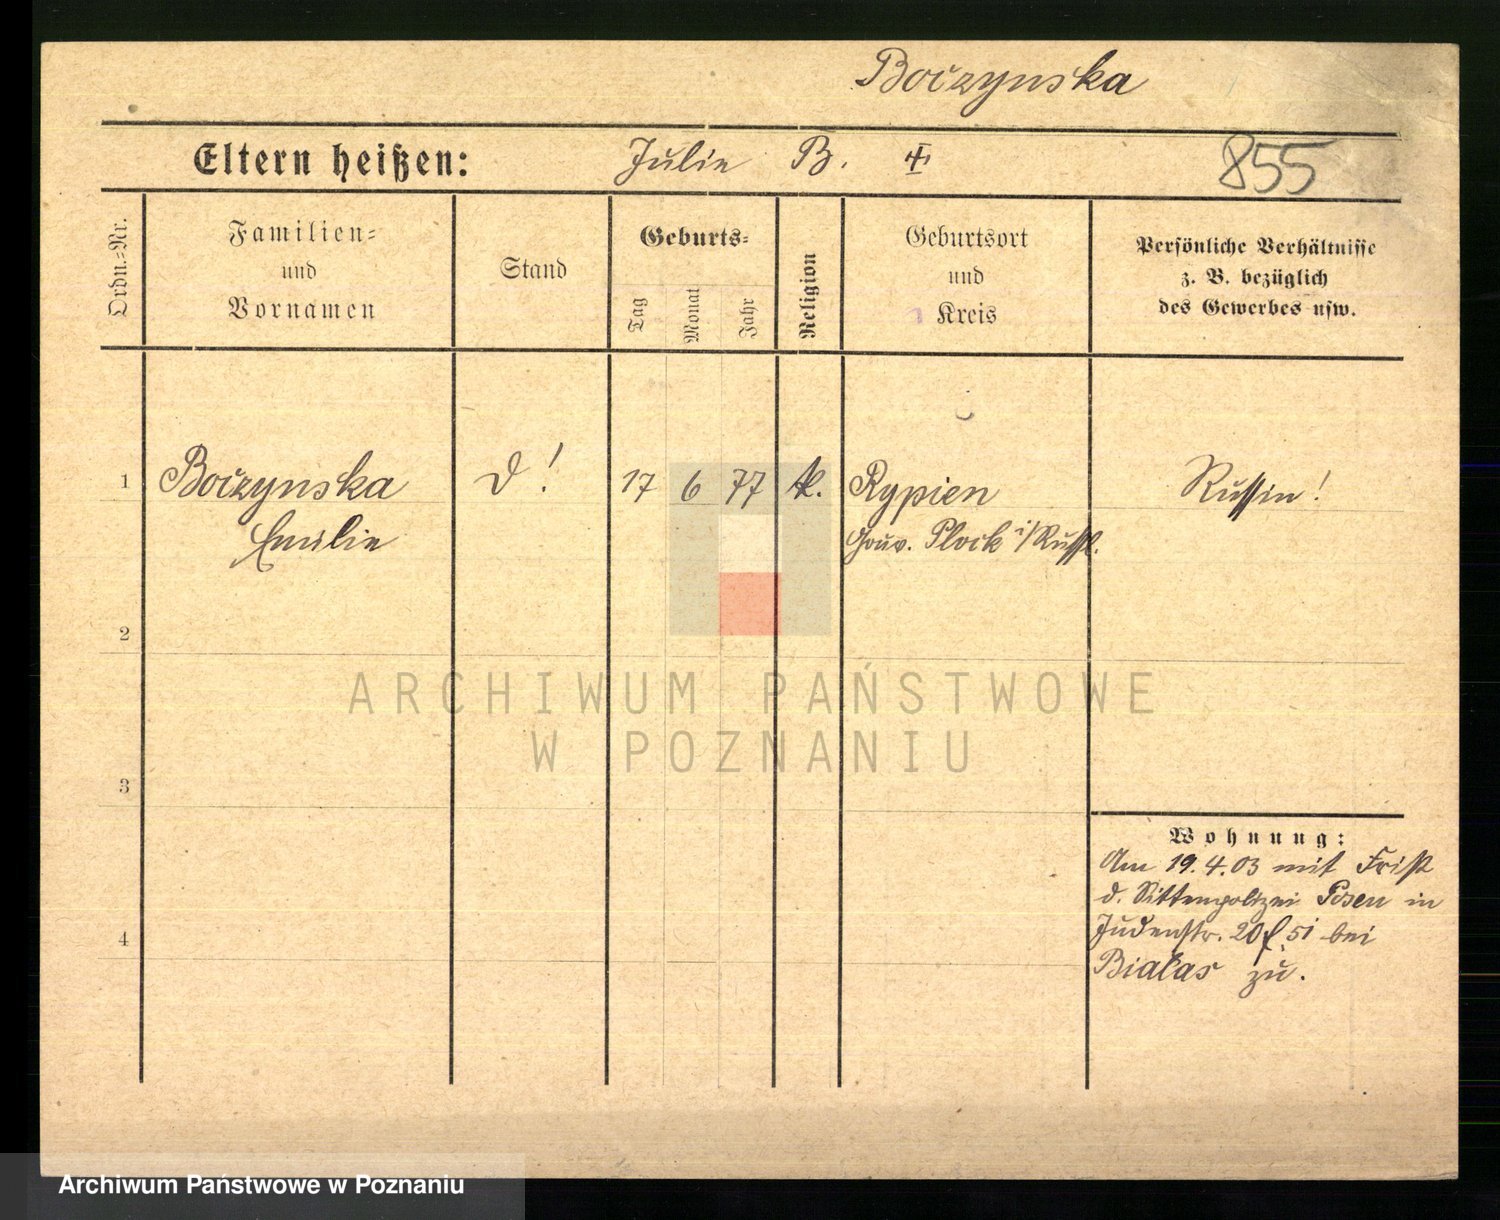 Boczynska
Eltern heißen: Julie B. 855
Ordn.-Nr.
Familien-
und
Vornamen
Stand
Geburts-
Tag
Monat
Jahr
Religion
Geburtsort
und
Kreis
Persönliche Verhältnisse
z. B. bezüglich
des Gewerbes usw.
1 Boczynska 17 6 77 k. Rypien Russin!
Emilie Gouv. Plock i/Russl.
2
3
4
Wohnung:
Am 19.4.03 mit Frist
d. Sittenpolizei Posen in
Judenstr. 20 bei
Bialas zu.
ARCHIWUM PAŃSTWOWE
W POZNANIU
Archiwum Państwowe w Poznaniu